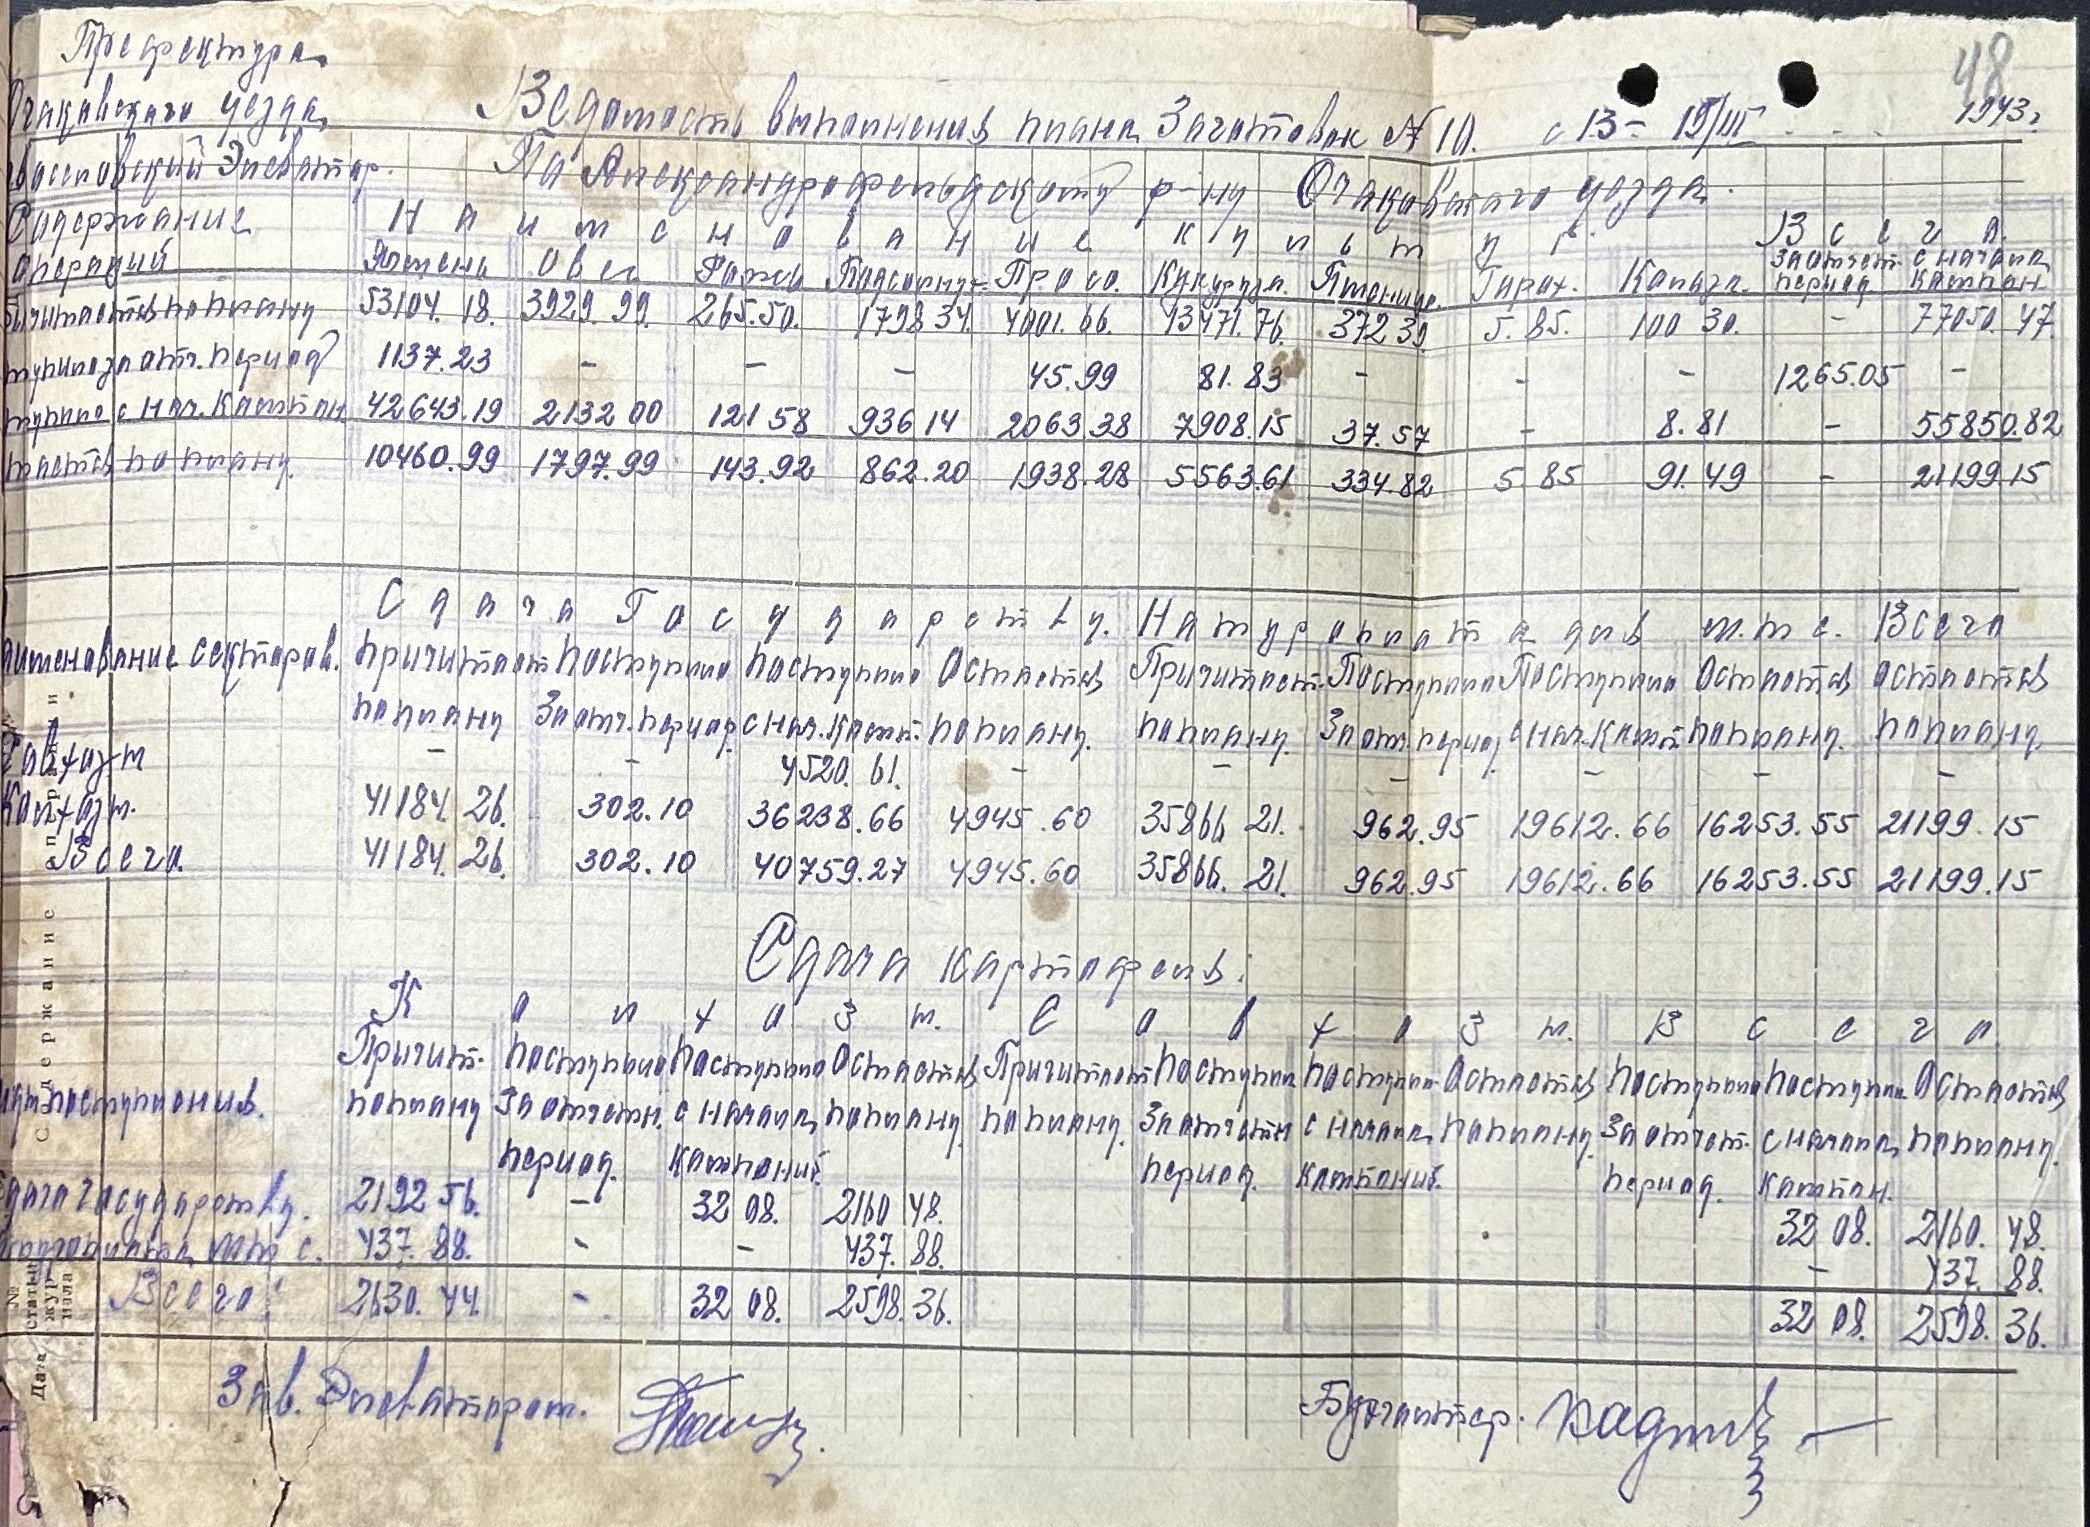 48
Префектура
Очаковскаго уезда
Ведомость выполнения плана Заготовок № 10. с 13 - 19/III 1943 г.
Элеватор.
По Александрофельдскому р-ну Очаковскаго уезда.
Содержание Наименование культур. Всего.
операций Ячмень Овес Рожь Подсолнух. Просо. Кукуруза. Пшеница. Горох. за отчет. период с начала кампан.
по плану 53104.18. 3929.99. 265.50. 1798 34. 4001.66. 13471.76. 372 39. 5.85. 100 30. - 77050.47.
за отч. период 1137.23 - - - 45.99 81.83 - - - 1265.05 -
с нач. Кампан. 42643.19 2132 00 121 58 936 14 2063 38 7908.15 37.57 - 8.81 - 55850.82
по плану. 10460.99 1797.99 143.92 862.20 1938.28 5563.61 334.82 5 85 91.49 - 21199 15
Сдача Государству. Натуроплата для м.т.с. Всего
наименование секторов. причитает. Поступило Поступило Остается Причитает. Поступило Поступило Остается остается
по плану За отч. период с нач. камп. по плану. по плану. За отч. период с нач. камп по плану. по плану.
Совхозы - - 4520.61. - - - - - -
Колхозы. 41184.26. 302.10 36238.66 4945.60 35866 21. 962.95 19612.66 16253.55 21199.15
Всего. 41184.26. 302.10 40759.27 4945.60 35866. 21. 962.95 19612.66 16253.55 21199.15
Сдача картофеля:
Колхозы. Совхозы. Всего.
Причит. Поступило Поступило Остается Причитает Поступил. Поступил. Остается Поступило Поступил. Остается
поступления. по плану За отчетн. с начала по плану. по плану. За отчетн с начала по плану. За отчет. с начала по плану.
период. кампании. период. кампании. период. кампан.
Сдача государству. 2192 56. - 32 08. 2160 48. 32 08. 2160. 48.
Натуроплата мт с. 437. 88. - - 437. 88. - 437. 88.
Всего: 2630. 44. - 32 08. 2598. 36. 32 08. 2598. 36.
Зав. Элеватором. Бухгалтер.
Дата № статьи журнала Содержание операции